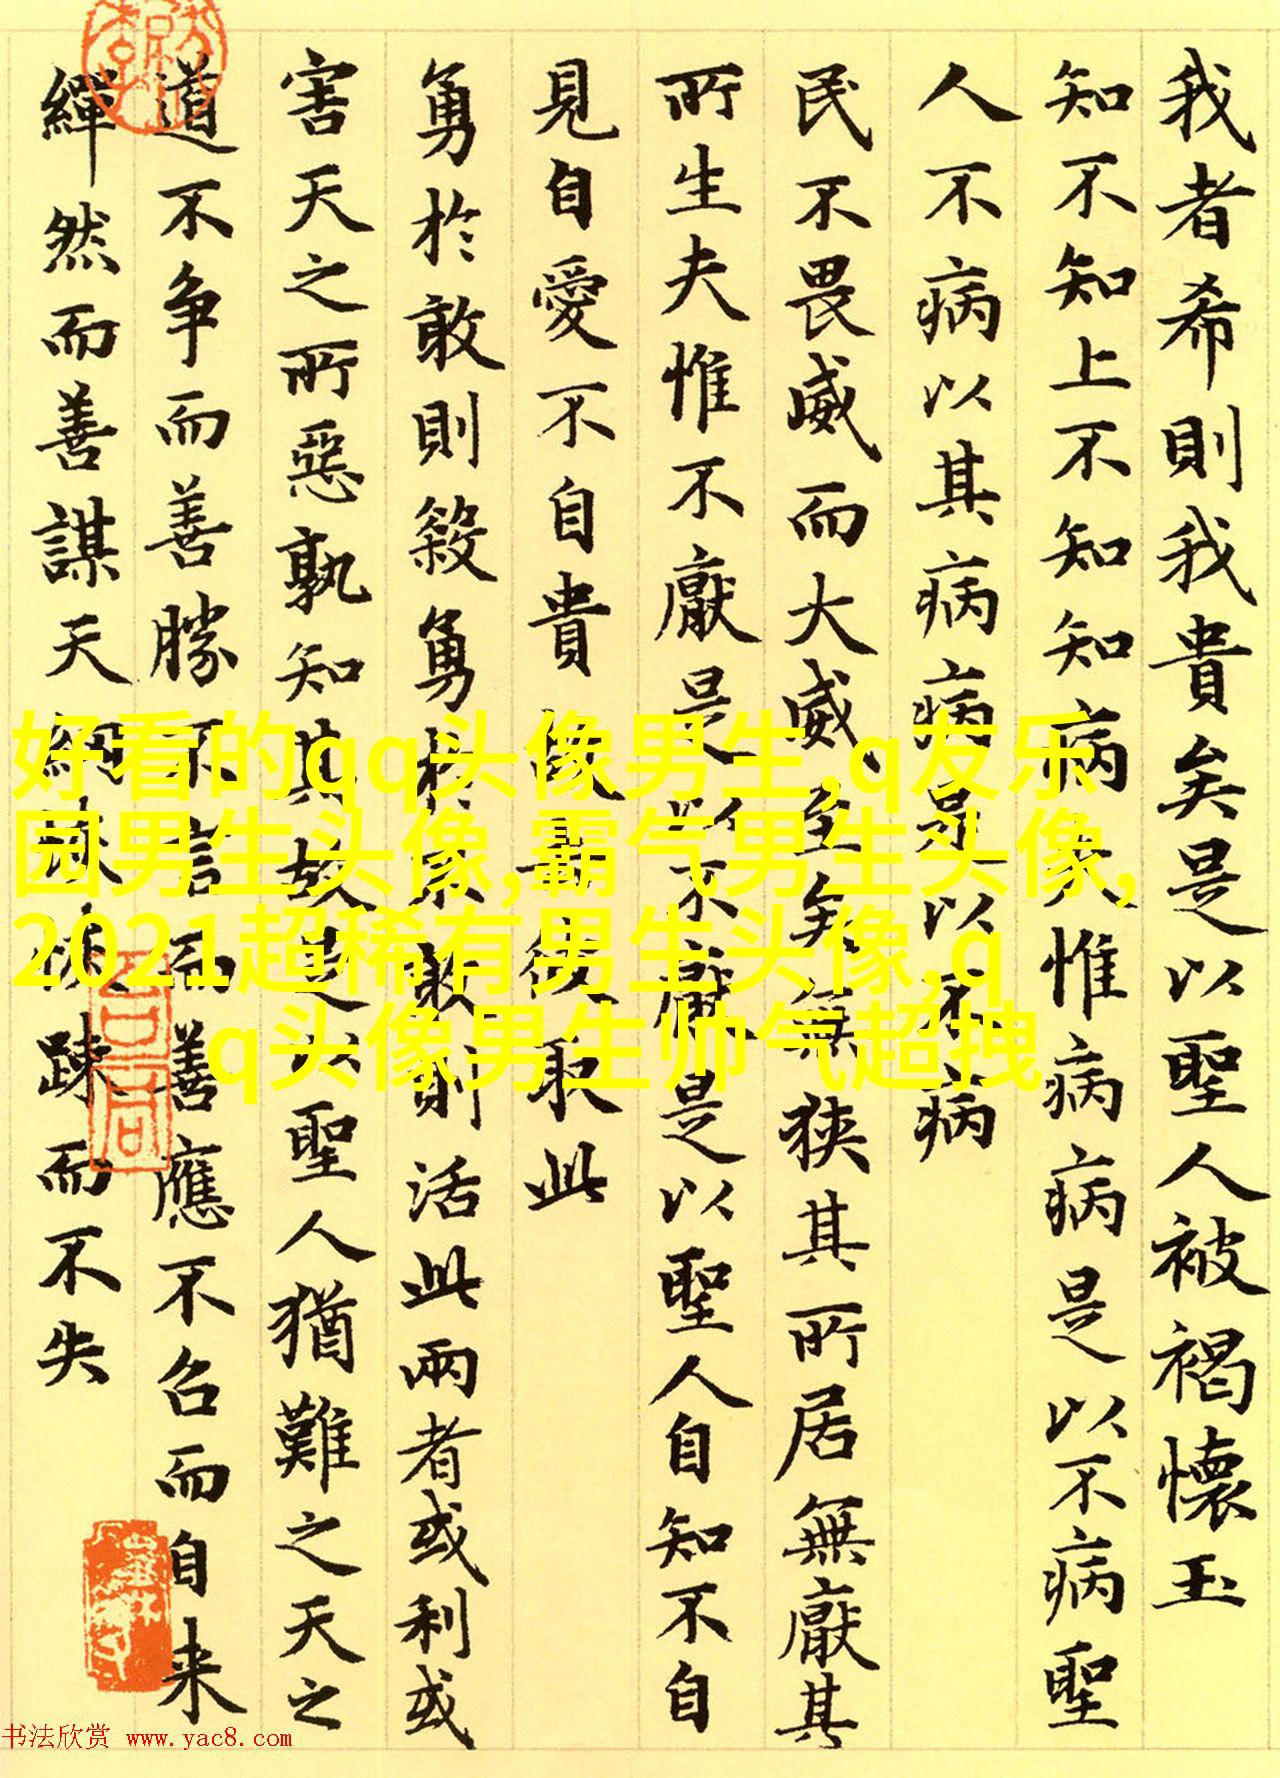 我者希則我貴矣是以聖人被褐懷玉
知不知上不知知病夫惟病病是以不病聖
人不病以其病病是以不病
民不畏威而大威至矣無狹其所居無厭其
所生夫惟不厭是以不厭是以聖人自知不自
見自愛不自貴故去彼取此
勇於敢則殺勇於不敢則活此兩者或利或
害天之所惡孰知其故是以聖人猶難之天之
道不争而善勝不言而善應不召而自来
繟然而善謀天網恢恢踈而不失
好看的qq头像男生,q发乐
园男生头像,霸气男生头像,
2021超稀有男生头像,q
q头像男生帅气超拽
书法欣赏 www.yac8.com